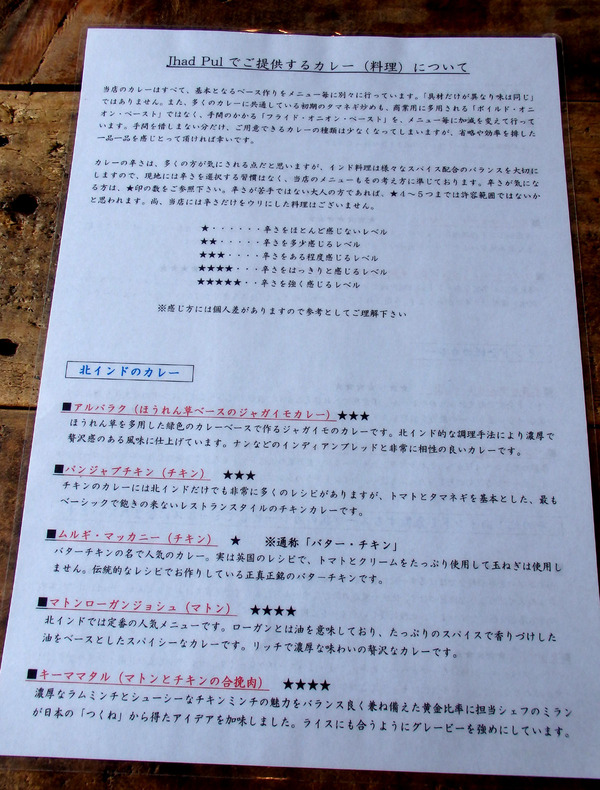 Jhad Pul でご提供するカレー（料理）について
当店のカレーはすべて、基本となるベース作りをメニュー毎に別々に行っています。「具材だけが異なり味は同じ」
ではありません。また、多くのカレーに共通している初期のタマネギ炒めも、商業用に多用される「ボイルド・オニ
オン・ペースト」ではなく、手間のかかる「フライド・オニオン・ペースト」を、メニュー毎に加減を変えて行って
います。手間を惜しまない分だけ、ご用意できるカレーの種類は少なくなってしまいますが、省略や効率を排した
一品一品を感じとって頂ければ幸いです。
カレーの辛さは、多くの方が気にされる点だと思いますが、インド料理は様々なスパイス配合のバランスを大切に
しますので、現地には辛さを選択する習慣はなく、当店のメニューもその考え方に準じております。辛さが気にな
る方は、★印の数をご参照下さい。辛さが苦手ではない大人の方であれば、★４～５つまでは許容範囲ではないか
と思われます。尚、当店には辛さだけをウリにした料理はございません。
★・・・・・・辛さをほとんど感じないレベル
★★・・・・・辛さを多少感じるレベル
★★★・・・・辛さをある程度感じるレベル
★★★★・・・辛さをはっきりと感じるレベル
★★★★★・・辛さを強く感じるレベル
※感じ方には個人差がありますので参考としてご理解下さい
北インドのカレー
■アルパラク（ほうれん草ベースのジャガイモカレー）★★★
ほうれん草を多用した緑色のカレーベースで作るジャガイモのカレーです。北インド的な調理手法により濃厚で
贅沢感のある風味に仕上げています。ナンなどのインディアンブレッドと非常に相性の良いカレーです。
■パンジャブチキン（チキン） ★★★
チキンのカレーには北インドだけでも非常に多くのレシピがありますが、トマトとタマネギを基本とした、最も
ベーシックで飽きの来ないレストランスタイルのチキンカレーです。
■ムルギ・マッカニー（チキン） ★ ※通称「バター・チキン」
バターチキンの名で人気のカレー。実は英国のレシピで、トマトとクリームをたっぷり使用して玉ねぎは使用し
ません。伝統的なレシピでお作りしている正真正銘のバターチキンです。
■マトンローガンジョシュ（マトン） ★★★★
北インドでは定番の人気メニューです。ローガンとは油を意味しており、たっぷりのスパイスで香りづけした
油をベースとしたスパイシーなカレーです。リッチで濃厚な味わいの贅沢なカレーです。
■キーママタル（マトンとチキンの合挽肉） ★★★★
濃厚なラムミンチとシューシーなチキンミンチの魅力をバランス良く兼ね備えた黄金比率に担当シェフのミラン
が日本の「つくね」から得たアイデアを加味しました。ライスにも合うようにグレービーを強めにしています。